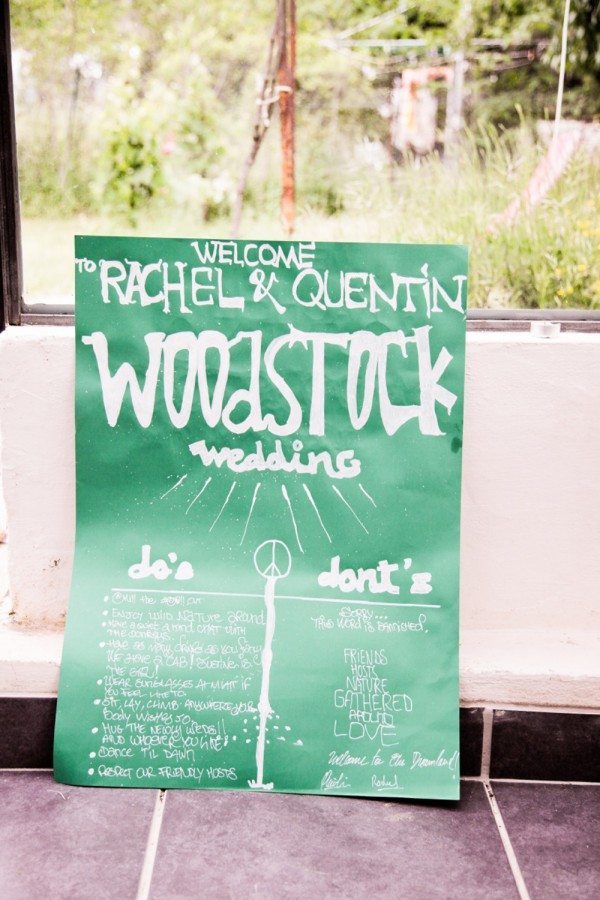 WELCOME
TO RACHEL & QUENTIN
WOOdSTOCK
wedding
do's
dont's
• CHill the OUT
• ENJOY WILD NATURE AROUND
• HAVE A QUIET & KIND CHAT WITH
THE DONKEYS
• HAVE AS MANY DRINKS AS YOU FANCY
WE HAVE A CAB!
• WEAR SUNGLASSES AT NIGHT IF
YOU FEEL LIKE TO
• SIT, LAY, CLIMB ANYWHERE YOUR
BODY WISHES TO
• HUG THE NEWLY WEDS!!
AND WHOEVER YOU LIKE!
• DANCE 'TIL DAWN
• RESPECT OUR FRIENDLY HOSTS
SORRY...
THIS WORD IS BANISHED.
FRIENDS
HOSTS
NATURE
GATHERED
AROUND
LOVE
Welcome to the Dreamland!
Rachel